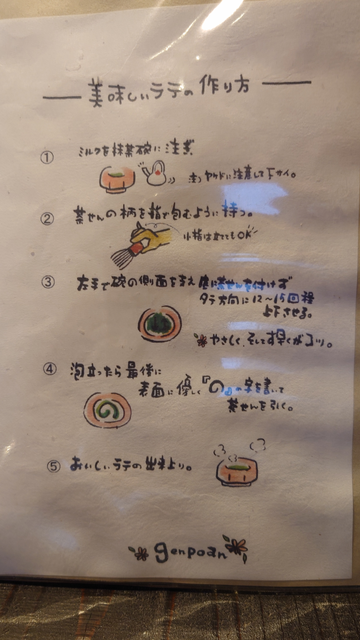 美味しいラテの作り方
① ミルクを抹茶碗に注ぎ
注)ヤケドに注意して下サイ。
② 茶せんの柄を指で包むように持つ。
小指は立ててもOK
③ 左手で碗の側面を支え 底に茶せんを付けず
タテ方向に12〜15回程
上下させる。
やさしく、そして早くがコツ。
④ 泡立ったら最後に
表面に優しく『の』の字を書いて
茶せんを引く。
⑤ おいしいラテの出来上り。
genpoan